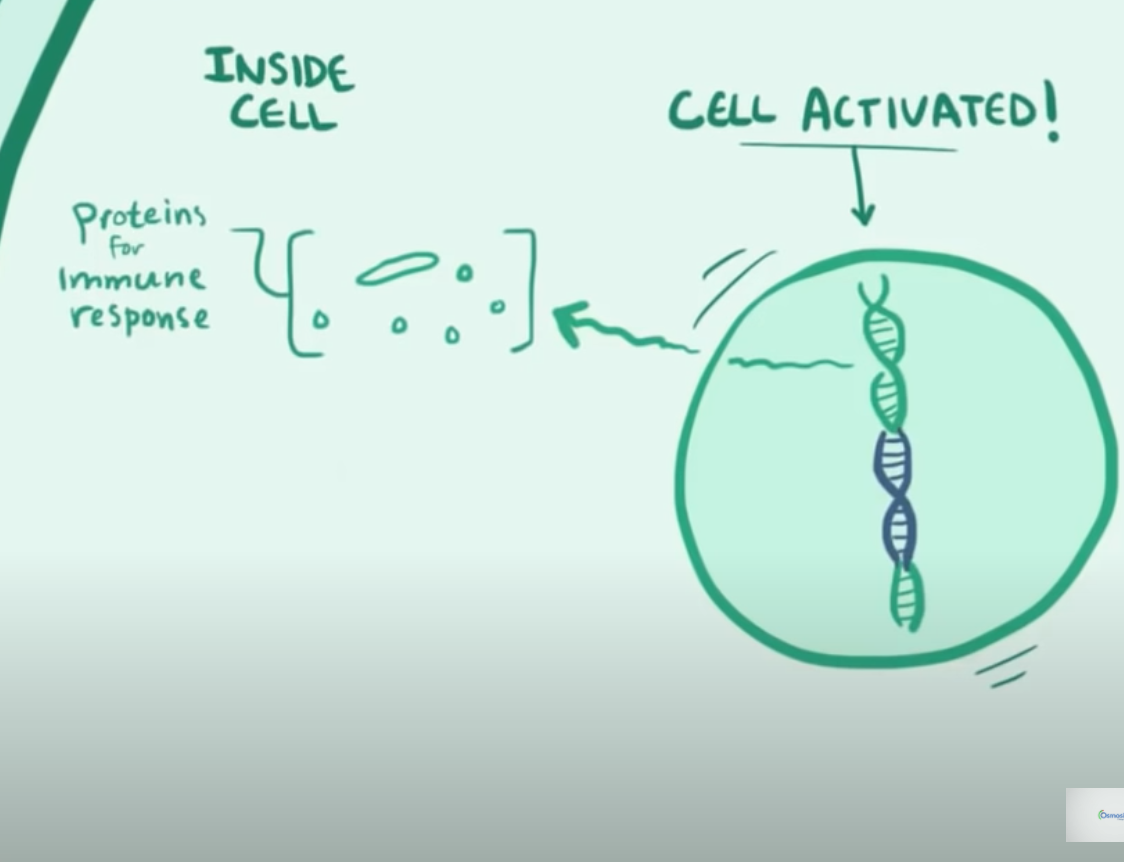 INSIDE
CELL
CELL ACTIVATED!
Proteins
for
Immune
response